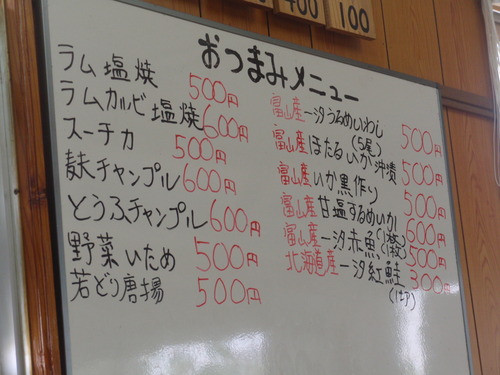 400
100
おつまみメニュー
ラム塩焼 500円
ラムカルビ塩焼 600円
スーチカ 500円
麸チャンプル 600円
とうふチャンプル 600円
野菜いため 500円
若どり唐揚 500円
富山産一汐うるめいわし(5尾) 500円
富山産ほたるいか沖漬 500円
富山産いか黒作り 500円
富山産甘塩するめいか 600円
富山産一汐赤魚(1枚) 500円
北海道産一汐紅鮭 300円